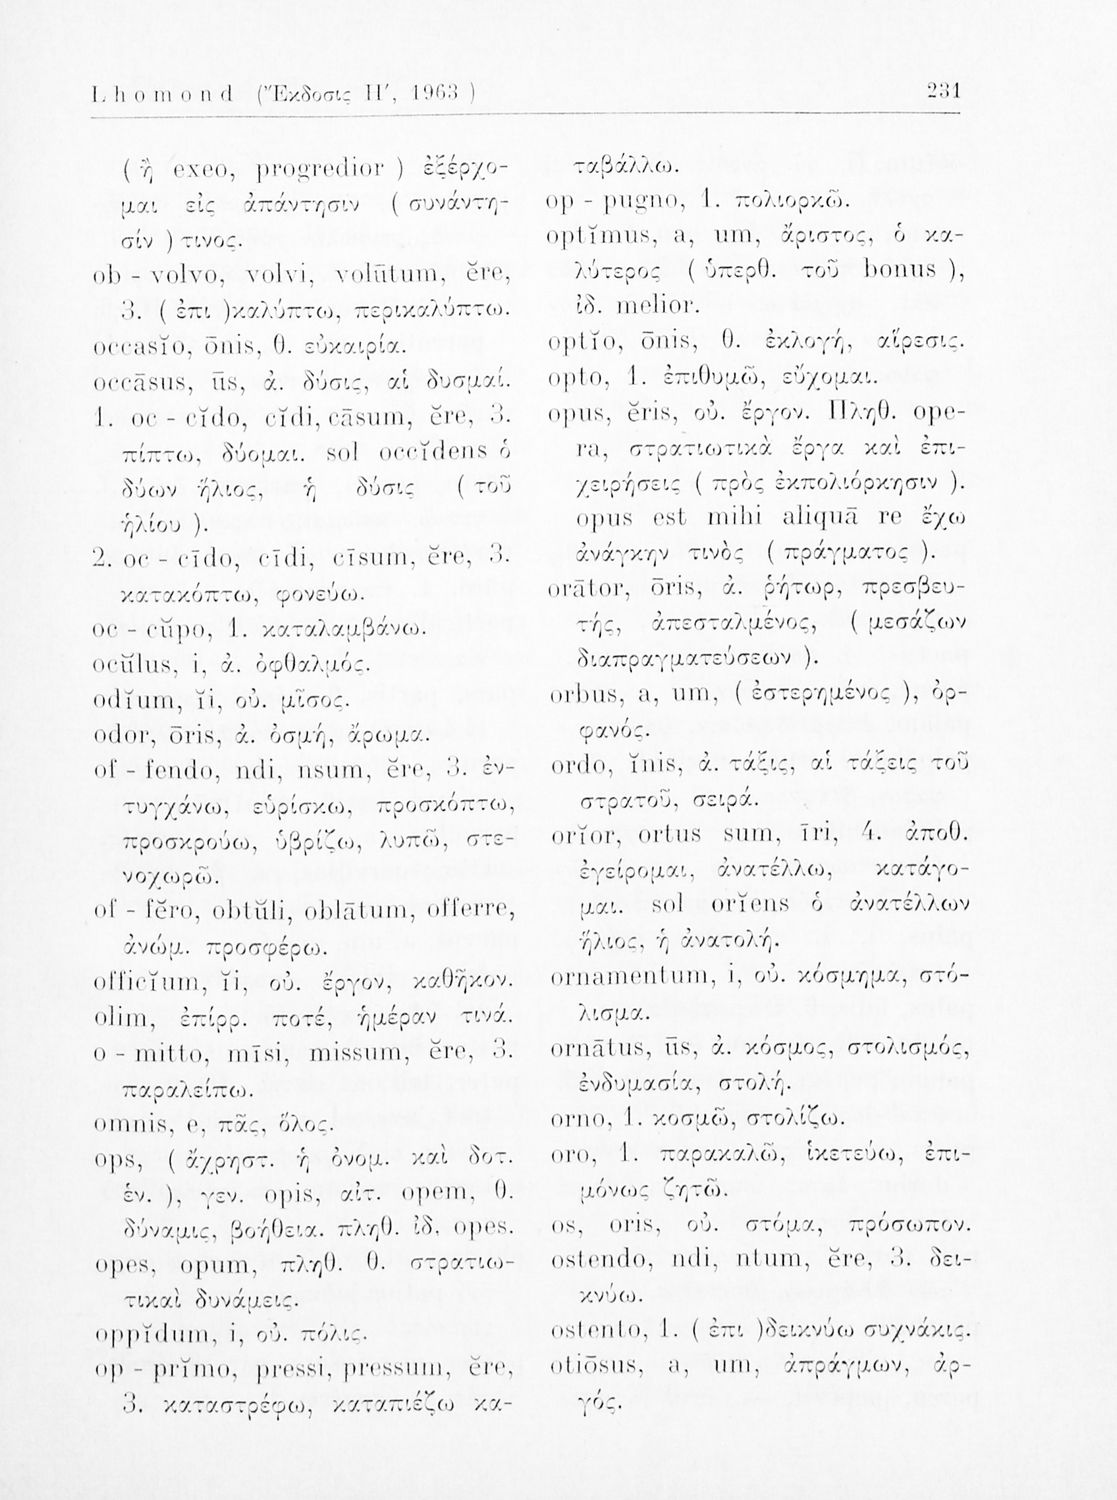 Lhomond (Ἔκδοσις Η′, 1963 ) 231
( ἢ exeo, progredior ) ἐξέρχο-
μαι εἰς ἀπάντησιν ( συνάντη-
σίν ) τινος.
ob - volvo, volvi, volūtum, ĕre,
3. ( ἐπι )καλύπτω, περικαλύπτω.
occasĭo, ōnis, θ. εὐκαιρία.
occāsus, ūs, ἀ. δύσις, αἱ δυσμαί.
1. oc - cĭdo, cĭdi, cāsum, ĕre, 3.
πίπτω, δύομαι. sol occĭdens ὁ
δύων ἥλιος, ἡ δύσις ( τοῦ
ἡλίου ).
2. oc - cīdo, cīdi, cīsum, ĕre, 3.
κατακόπτω, φονεύω.
oc - cŭpo, 1. καταλαμβάνω.
ocŭlus, i, ἀ. ὀφθαλμός.
odĭum, ĭi, οὐ. μῖσος.
odor, ōris, ἀ. ὀσμή, ἄρωμα.
of - fendo, ndi, nsum, ĕre, 3. ἐν-
τυγχάνω, εὑρίσκω, προσκόπτω,
προσκρούω, ὑβρίζω, λυπῶ, στε-
νοχωρῶ.
of - fĕro, obtŭli, oblātum, offerre,
ἀνώμ. προσφέρω.
officĭum, ĭi, οὐ. ἔργον, καθῆκον.
olim, ἐπίρρ. ποτέ, ἡμέραν τινά.
o - mitto, mīsi, missum, ĕre, 3.
παραλείπω.
omnis, e, πᾶς, ὅλος.
ops, ( ἄχρηστ. ἡ ὀνομ. καὶ δοτ.
ἑν. ), γεν. opis, αἰτ. opem, θ.
δύναμις, βοήθεια. πληθ. ἰδ. opes.
opes, opum, πληθ. θ. στρατιω-
τικαὶ δυνάμεις.
oppĭdum, i, οὐ. πόλις.
op - prĭmo, pressi, pressum, ĕre,
3. καταστρέφω, καταπιέζω κα-
ταβάλλω.
op - pugno, 1. πολιορκῶ.
optĭmus, a, um, ἄριστος, ὁ κα-
λύτερος ( ὑπερθ. τοῦ bonus ),
ἰδ. melior.
optĭo, ōnis, θ. ἐκλογή, αἵρεσις.
opto, 1. ἐπιθυμῶ, εὔχομαι.
opus, ĕris, οὐ. ἔργον. Πληθ. ope-
ra, στρατιωτικὰ ἔργα καὶ ἐπι-
χειρήσεις ( πρὸς ἐκπολιόρκησιν ).
opus est mihi aliquā re ἔχω
ἀνάγκην τινὸς ( πράγματος ).
orātor, ōris, ἀ. ῥήτωρ, πρεσβευ-
τής, ἀπεσταλμένος, ( μεσάζων
διαπραγματεύσεων ).
orbus, a, um, ( ἐστερημένος ), ὀρ-
φανός.
ordo, ĭnis, ἀ. τάξις, αἱ τάξεις τοῦ
στρατοῦ, σειρά.
orĭor, ortus sum, īri, 4. ἀποθ.
ἐγείρομαι, ἀνατέλλω, κατάγο-
μαι. sol orĭens ὁ ἀνατέλλων
ἥλιος, ἡ ἀνατολή.
ornamentum, i, οὐ. κόσμημα, στό-
λισμα.
ornātus, ūs, ἀ. κόσμος, στολισμός,
ἐνδυμασία, στολή.
orno, 1. κοσμῶ, στολίζω.
oro, 1. παρακαλῶ, ἱκετεύω, ἐπι-
μόνως ζητῶ.
os, oris, οὐ. στόμα, πρόσωπον.
ostendo, ndi, ntum, ĕre, 3. δει-
κνύω.
ostento, 1. ( ἐπι )δεικνύω συχνάκις.
otiōsus, a, um, ἀπράγμων, ἀρ-
γός.